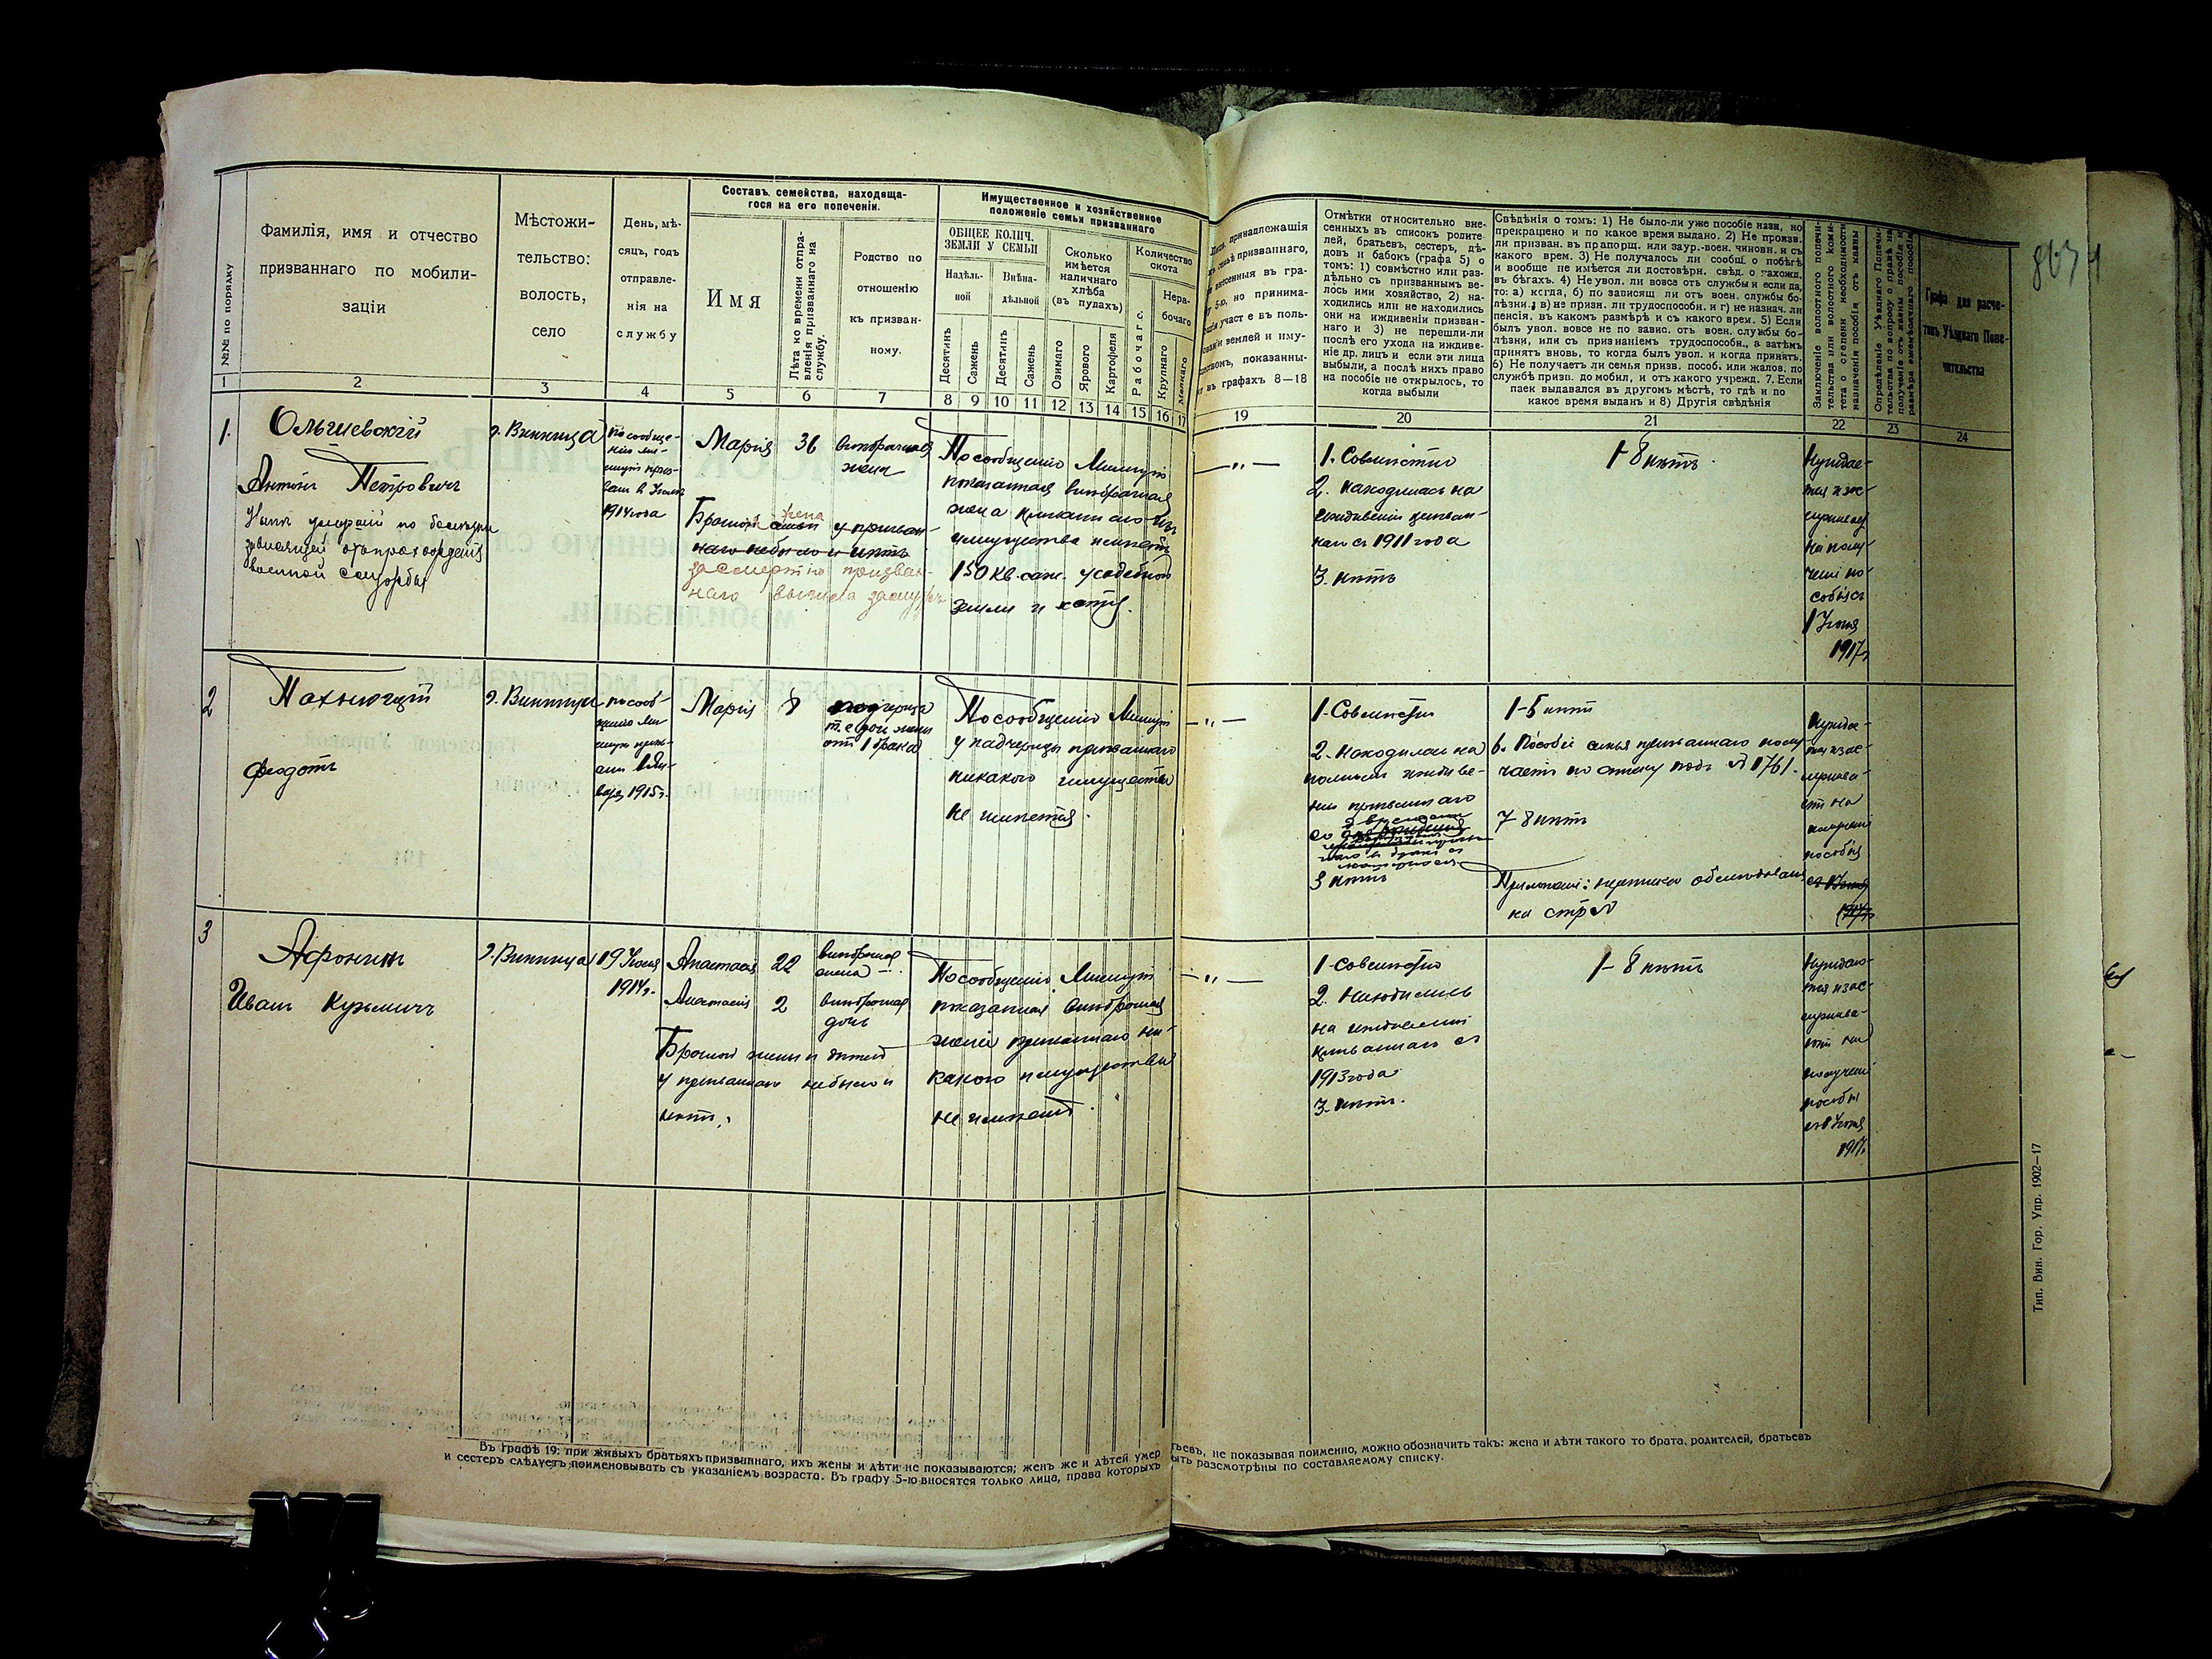 863 4
№№ по порядку
Фамилія, имя и отчество
призваннаго по мобили-
заціи
Мѣстожи-
тельство:
волость,
село
День, мѣ-
сяцъ, годъ
отправле-
нія на
службу
Составъ семейства, находяща-
гося на его попеченіи.
Имя
Лѣта ко времени отпра-
вленія призваннаго на
службу.
Родство по
отношенію
къ призван-
ному.
Имущественное и хозяйственное
положеніе семьи призваннаго
ОБЩЕЕ КОЛИЧ.
ЗЕМЛИ У СЕМЬИ
Надѣль-
ной
Внѣна-
дѣльной
Десятинъ
Сажень
Десятинъ
Сажень
Сколько
имѣется
наличнаго
хлѣба
(въ пудахъ)
Озимаго
Ярового
Картофеля
Количество
скота
Рабочаго с.
Нера-
бочаго
Крупнаго
Мелкаго
Лица, принадлежащія
семьѣ призваннаго,
внесенныя въ гра-
5-ю, но принима-
участ е въ поль-
землей и иму-
ществомъ, показанны-
въ графахъ 8—18
Отмѣтки относительно вне-
сенныхъ въ список родите-
лей, братьевъ, сестеръ, дѣ-
довъ и бабокъ (графа 5) о
томъ: 1) совмѣстно или раз-
дѣльно съ призваннымъ ве-
лось ими хозяйство, 2) на-
ходились или не находились
они на иждивеніи призван-
наго и 3) не перешли-ли
послѣ его ухода на иждиве-
ніе др. лицъ и если эти лица
выбыли, а послѣ нихъ право
на пособіе не открылось, то
когда выбыли
Свѣдѣнія о томъ: 1) Не было-ли уже пособіе назн, но
прекращено и по какое время выдано. 2) Не произв.
ли призван. въ прапорщ. или заур.-воен. чиновн. и съ
какого врем. 3) Не получалось ли сообщ. о побѣгѣ
и вообще не имѣется ли достовѣрн. свѣд. о нахожд.
въ бѣгахъ. 4) Не увол. ли вовсе отъ службы и если да,
то: а) когда, б) по зависящ ли отъ воен. службы бо-
лѣзни, в) не призн. ли трудоспособн. и г) не назнач. ли
пенсія, въ какомъ размѣрѣ и съ какого врем. 5) Если
былъ увол. вовсе не по завис. отъ воен. службы бо-
лѣзни, или съ признаніемъ трудоспособн., а затѣмъ
принятъ вновь, то когда былъ увол. и когда принятъ.
6) Не получаетъ ли семья призв. пособ. или жалов. по
службѣ призв. до мобил, и отъ какого учрежд. 7. Если
паек выдавался въ другомъ мѣстѣ, то гдѣ и по
какое время выданъ и 8) Другія свѣдѣнія
Заключеніе волостного попечи-
тельства или волостного коми-
тета о степени необходимости
назначенія пособія отъ казны
Опредѣленіе Уѣзднаго Попечи-
тельства по вопросу о правѣ на
полученіе отъ казны пособія и
размѣра ежемѣсячнаго пособія
Графа для расче-
товъ Уѣзднаго Попе-
чительства
1 2 3 4 5 6 7 8 9 10 11 12 13 14 15 16 17 19 20 21 22 23 24
1.
Ольшевскій
Антонъ Петровичъ
военной службы
г. Винница
по сообще-
нію ми-
1914 года
Марія 36 внѣбрачная
жена
Брачной жена у призван-
наго не было и нѣтъ
за смертію призван-
наго вышла замужъ
По сообщенію Милиціи
показанная внѣбрачная
жена призваннаго изъ
имущества имѣетъ
150 кв. саж. усадебной
земли и хату.
— „ —
1. Совмѣстно
2. находилась на
иждивеніи призван-
наго съ 1911 года
3. нѣтъ
1-8 нѣтъ.
Нуждае-
тся и зас-
луживаетъ
на полу-
ченіе по-
собія съ
1 Іюня
1917 г.
2
Феодотъ
г. Винница
по сооб-
щенію ми-
1915 г.
Марія 8 падчерица
т. е дочь жены
отъ 1 брака
По сообщенію Милиціи
у падчерицы призваннаго
никакого имущества
не имѣется.
— „ —
1. Совмѣстно
2. Находилась на
полномъ иждиве-
ніи призваннаго
3 нѣтъ
1-5 нѣтъ
6. Пособіе семья призваннаго полу-
чаетъ по списку подъ № 1761.
7-8 нѣтъ
на стр №
Нуждае-
тся и зас-
лужива-
етъ на
полученіе
пособія
съ 1 Іюня
1917 г.
3
Афонинъ
Иванъ Кузьмичъ
г. Винница
19 Іюля
1914 г.
Анастасія 22 внѣбрачная
жена
Анастасія 2 внѣбрачная
дочь
Брачной жены и дѣтей
у призваннаго не было и
нѣтъ.
По сообщенію Милиціи
показанная внѣбрачная
жена призваннаго ни-
какого имущества
не имѣетъ.
— „ —
1. совмѣстно
2. Находились
на иждивеніи
призваннаго съ
1913 года
3. нѣтъ.
1-8 нѣтъ
Нуждаю-
тся и зас-
лужива-
ютъ на
полученіе
пособія
съ 1 Іюня
1917 г.
Тип. Вин. Гор. Упр. 1902—17
Въ графѣ 19: при живыхъ братьяхъ призваннаго, ихъ жены и дѣти не показываются; женъ же и дѣтей умер тьевъ, не показывая поименно, можно обозначить такъ: жена и дѣти такого то брата, родителей, братьевъ
и сестеръ слѣдуетъ поименовывать съ указаніемъ возраста. Въ графу 5-ю вносятся только лица, права которыхъ ыть разсмотрѣны по составляемому списку.